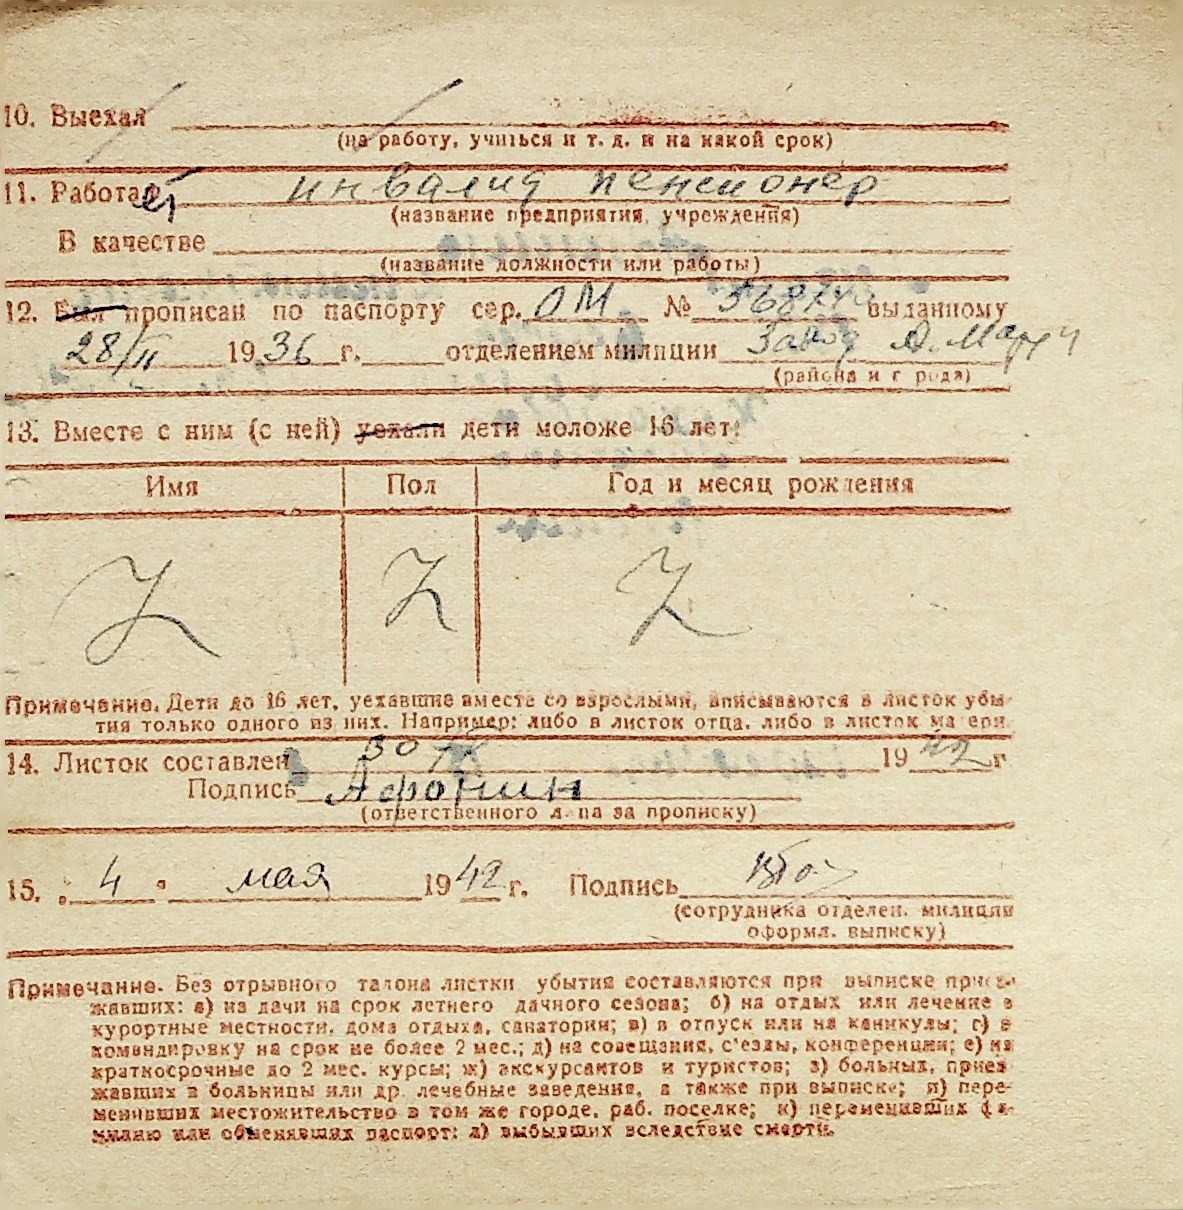 10. Выехал
(на работу, учиться и т. д. и на какой срок)
11. Работает инвалид пенсионер
(название предприятия, учреждения)
В качестве
(название должности или работы)
12. Был прописан по паспорту сер. ОМ № выданному
28/II 1936 г. отделением милиции Завод А. Марти
(района и города)
13. Вместе с ним (с ней) уехали дети моложе 16 лет:
Имя Пол Год и месяц рождения
Z Z Z
Примечание. Дети до 16 лет, уехавшие вместе со взрослыми, вписываются в листок убы-
тия только одного из них. Например: либо в листок отца, либо в листок матери.
14. Листок составлен 30 1942 г.
Подпись Афонин
(ответственного лица за прописку)
15. „ 4 " мая 1942 г. Подпись
(сотрудника отделен. милиции
оформл. выписку)
Примечание. Без отрывного талона листки убытия составляются при выписке приез-
жавших: а) из дачи на срок летнего дачного сезона; б) на отдых или лечение в
курортные местности, дома отдыха, санатории; в) в отпуск или на каникулы; г) в
командировку на срок не более 2 мес.; д) на совещания, с'езды, конференции; е) на
краткосрочные до 2 мес. курсы; ж) экскурсантов и туристов; з) больных, приез-
жавших в больницы или др. лечебные заведения, а также при выписке; и) пере-
менивших местожительство в том же городе, раб. поселке; к) переменивших фа-
милию или обменявших паспорт; л) выбывших вследствие смерти.